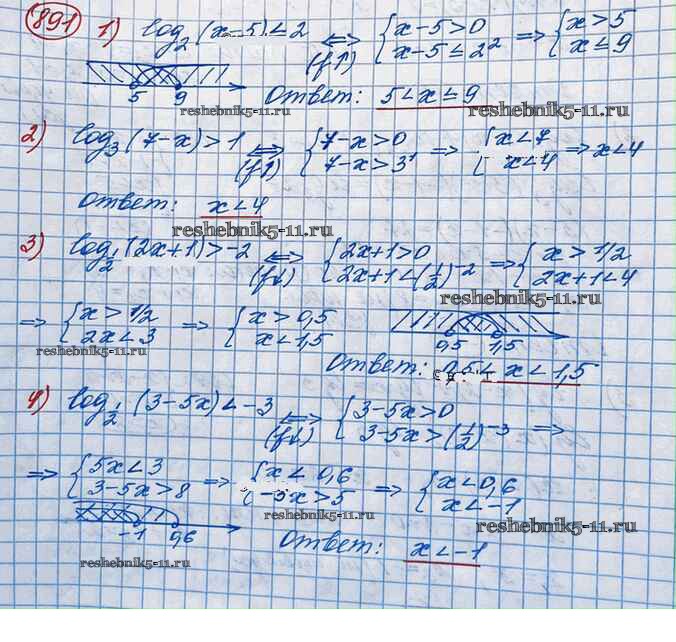 891
1) log₂(x-5) ≤ 2 ⟺ (f↑) { x-5>0 ; x-5 ≤ 2² ⇒ { x>5 ; x≤9
5 9 Ответ: 5<x≤9
reshebnik5-11.ru reshebnik5-11.ru
2) log₃(7-x)>1 ⟺ (f↑) { 7-x>0 ; 7-x>3¹ ⇒ { x<7 ; x<4 ⇒ x<4
Ответ: x<4
reshebnik5-11.ru
3) log_1/2 (2x+1)>-2 ⟺ (f↓) { 2x+1>0 ; 2x+1<(1/2)⁻² ⇒ { x>1/2 ; 2x+1<4
reshebnik5-11.ru
⇒ { x>1/2 ; 2x<3 ⇒ { x>0,5 ; x<1,5
0,5 1,5
reshebnik5-11.ru
Ответ: 0,5<x<1,5
4) log_1/2 (3-5x)<-3 ⟺ (f↓) { 3-5x>0 ; 3-5x>(1/2)⁻³ ⇒
⇒ { 5x<3 ; 3-5x>8 ⇒ { x<0,6 ; -5x>5 ⇒ { x<0,6 ; x<-1
reshebnik5-11.ru reshebnik5-11.ru
-1 0,6 Ответ: x<-1
reshebnik5-11.ru